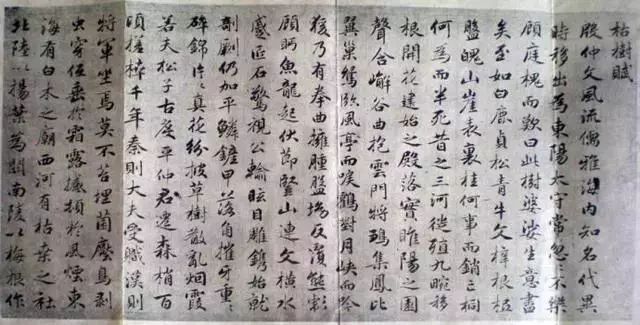 枯樹賦
殷仲文風流儒雅海內知名代異
時移出為東陽太守常忽忽不樂
顧庭槐而歎曰此樹婆娑生意盡
矣至如白鹿貞松青牛文梓根柢
盤魄山崖表裏桂何事而銷亡桐
何為而半死昔之三河徙殖九畹移
根開花建始之殿落實睢陽之園
聲含嶰谷曲抱雲門將鶵集鳳比
翼巢鴛臨風亭而唳鶴對月峽而吟
猨乃有拳曲擁腫盤坳反覆熊彪
顧盼魚龍起伏節豎山連文橫水
蹙匠石驚視公輸眩目雕鐫始就
剞劂仍加平鱗鏟甲落角摧牙重重
碎錦片片真花紛披草樹散亂烟霞
若夫松子古度平仲君遷森梢百
頃槎枿千年秦則大夫受職漢則
將軍坐焉莫不苔埋菌壓鳥剝
虫穿低垂於霜露撼頓於風煙東
海有白木之廟西河有枯桑之社
北陸以楊葉為關南陵以梅根作